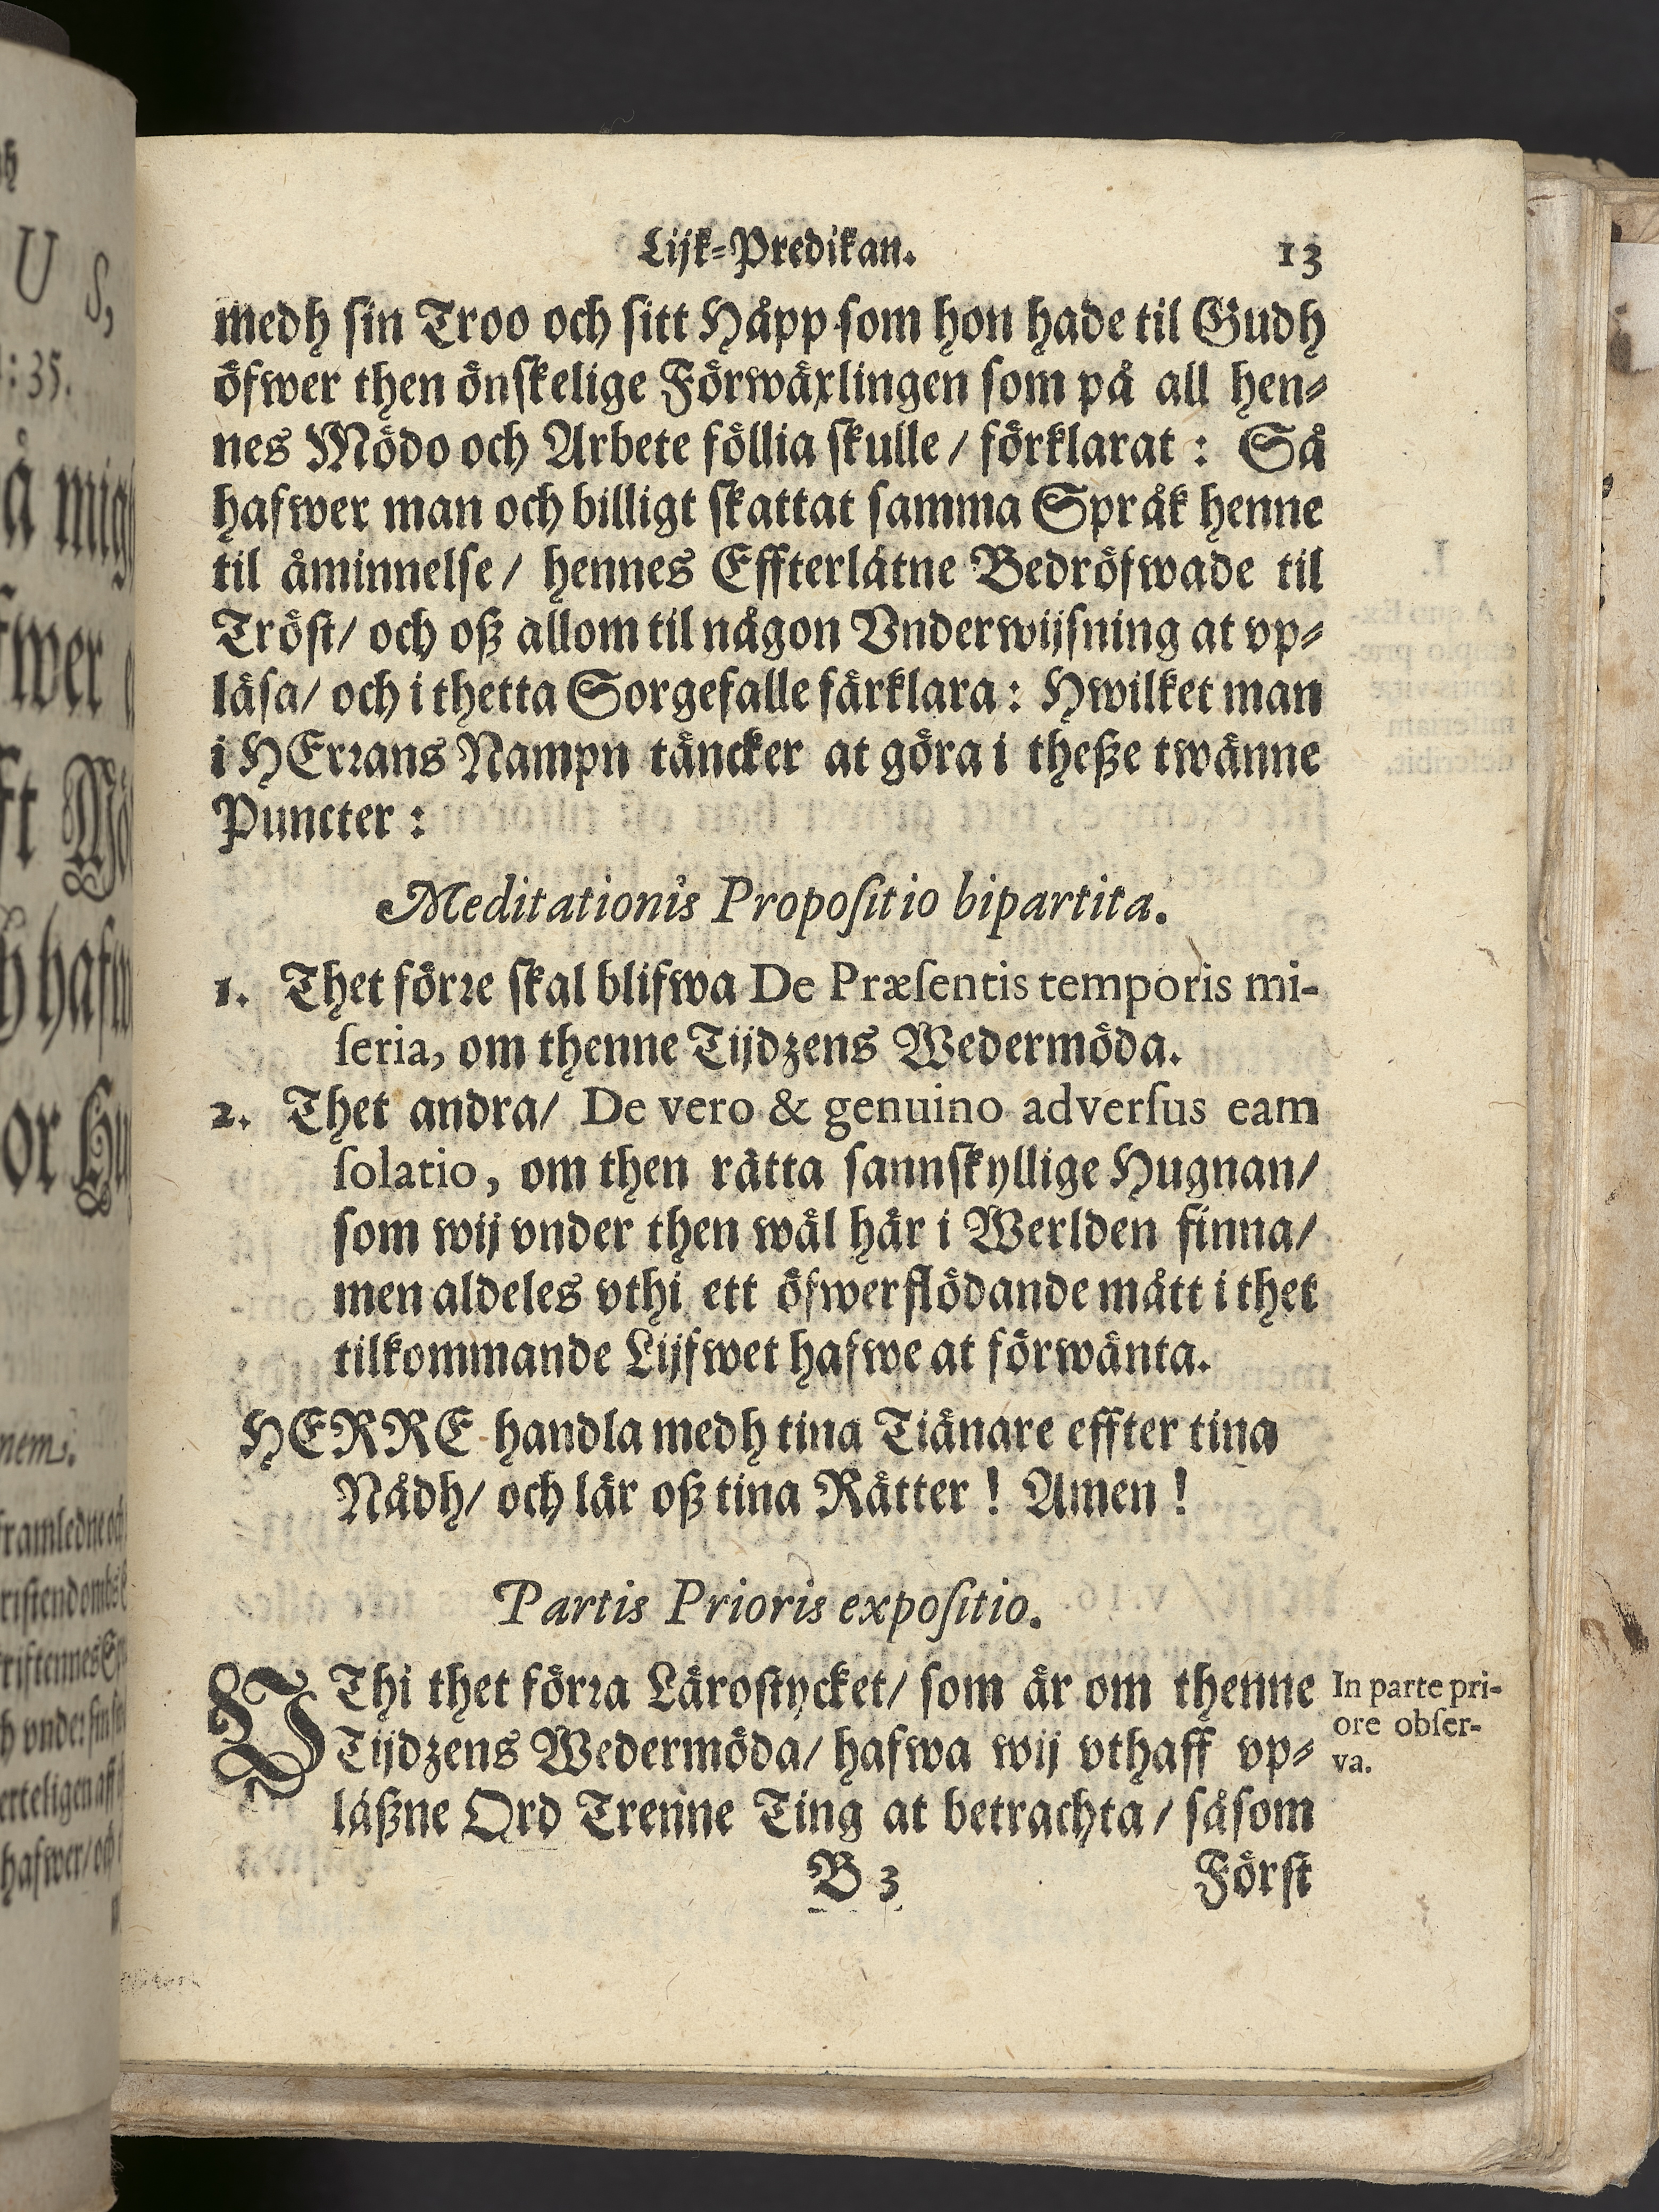 Lijk-Predikan. 13
medh sin Troo och sitt Håpp som hon hade til Gudh
öfwer then önskelige Förwäxlingen som på all hen-
nes Mödo och Arbete föllia skulle / förklarat : Så
hafwer man och billigt skattat samma Språk henne
til åminnelse / hennes Effterlåtne Bedröfwade til
Tröst / och oß allom til någon Vnderwijsning at vp-
läsa / och i thetta Sorgefalle färklara : Hwilket man
i HErrans Nampn täncker at göra i theße twänne
Puncter :
Meditationis Propositio bipartita.
1. Thet förre skal blifwa De Præsentis temporis mi-
seria, om thenne Tijdzens Wedermöda.
2. Thet andra / De vero & genuino adversus eam
solatio, om then rätta sannskyllige Hugnan /
som wij vnder then wäl här i Werlden finna /
men aldeles vthi ett öfwerflödande mått i thet
tilkommande Lijfwet hafwe at förwänta.
HERRE handla medh tina Tiänare effter tina
Nådh / och lär oß tina Rätter ! Amen !
Partis Prioris expositio.
VThi thet förra Lärostycket / som är om thenne
Tijdzens Wedermöda / hafwa wij vthaff vp-
läßne Ord Trenne Ting at betrachta / såsom
In parte pri-
ore obser-
va.
B 3 Först